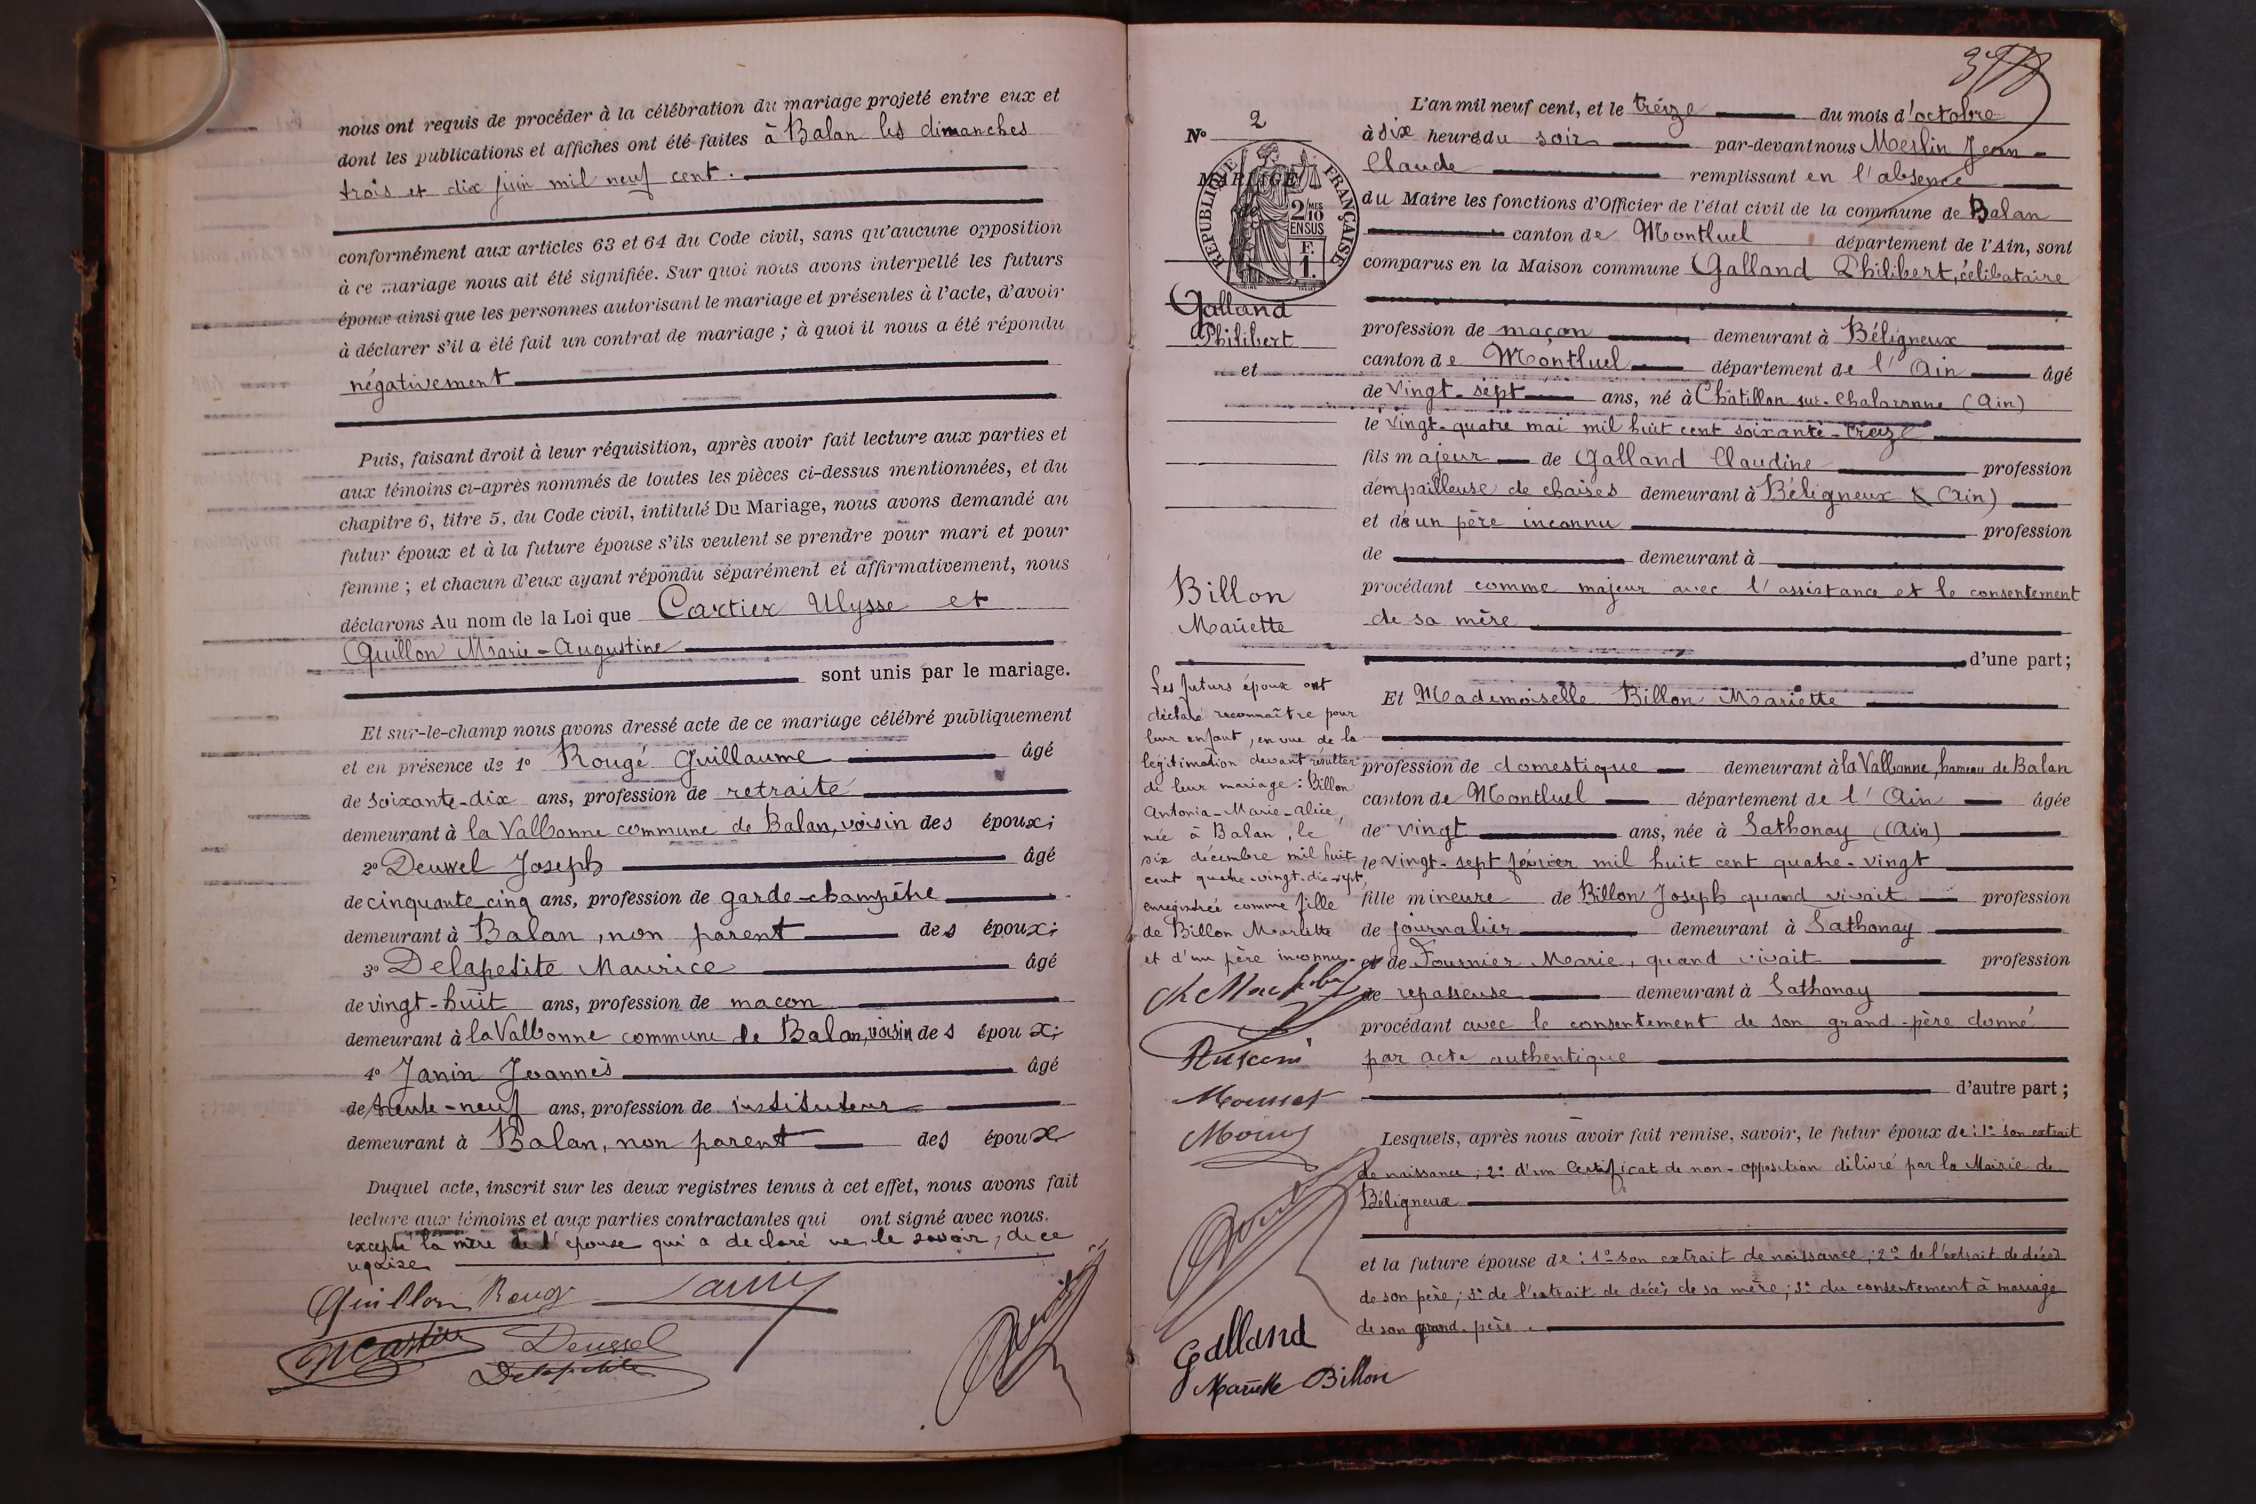 nous ont requis de procéder à la célébration du mariage projeté entre eux et
dont les publications et affiches ont été faites à Balan les dimanches
trois et dix juin mil neuf cent.
conformément aux articles 63 et 64 du Code civil, sans qu'aucune opposition
à ce mariage nous ait été signifiée. Sur quoi nous avons interpellé les futurs
époux ainsi que les personnes autorisant le mariage et présentes à l'acte, d'avoir
à déclarer s'il a été fait un contrat de mariage ; à quoi il nous a été répondu
négativement
Puis, faisant droit à leur réquisition, après avoir fait lecture aux parties et
aux témoins ci-après nommés de toutes les pièces ci-dessus mentionnées, et du
chapitre 6, titre 5, du Code civil, intitulé Du Mariage, nous avons demandé au
futur époux et à la future épouse s'ils veulent se prendre pour mari et pour
femme ; et chacun d'eux ayant répondu séparément et affirmativement, nous
déclarons Au nom de la Loi que Cartier Ulysse et
Guillon Marie-Augustine
sont unis par le mariage.
Et sur-le-champ nous avons dressé acte de ce mariage célébré publiquement
et en présence de 1° Rougé Guillaume âgé
de soixante-dix ans, profession de retraité
demeurant à la Valbonne commune de Balan, voisin des époux ;
2° Deuwel Joseph âgé
de cinquante-cinq ans, profession de garde-champêtre
demeurant à Balan, non parent des époux ;
3° Delapetite Maurice âgé
de vingt-huit ans, profession de maçon
demeurant à la Valbonne commune de Balan, voisin des époux ;
4° Janin Joannès âgé
de trente-neuf ans, profession de instituteur
demeurant à Balan, non parent des époux
Duquel acte, inscrit sur les deux registres tenus à cet effet, nous avons fait
lecture aux témoins et aux parties contractantes qui ont signé avec nous.
excepté la mère de l'épouse qui a déclaré ne le savoir, de ce
Guillon Rougé Janin
Cartier Deuwel
Delapetite
N° 2
MARIAGE
de
RÉPUBLIQUE FRANÇAISE
2/10
MES
EN SUS
F.
1.
Galland
Philibert
et
Billon
Mariette
Les futurs époux ont
déclaré reconnaître pour
leur enfant, en vue de la
légitimation devant résulter
de leur mariage : Billon
Antonia-Marie-Alice,
née à Balan, le
six décembre mil huit
cent quatre-vingt-dix-sept,
enregistrée comme fille
de Billon Mariette
et d'un père inconnu.
Rusconi
Mousset
Galland
Mariette Billon
L'an mil neuf cent, et le treize du mois d'octobre
à six heures du soir par-devant nous Merlin Jean-
Claude remplissant en l'absence
du Maire les fonctions d'Officier de l'état civil de la commune de Balan
canton de Montluel département de l'Ain, sont
comparus en la Maison commune Galland Philibert, célibataire
profession de maçon demeurant à Béligneux
canton de Montluel département de l'Ain âgé
de vingt-sept ans, né à Châtillon-sur-Chalaronne (Ain)
le vingt-quatre mai mil huit cent soixante-treize
fils majeur de Galland Claudine profession
d'empailleuse de chaises demeurant à Béligneux (Ain)
et d'un père inconnu profession
de demeurant à
procédant comme majeur avec l'assistance et le consentement
de sa mère
d'une part ;
Et Mademoiselle Billon Mariette
profession de domestique demeurant à la Valbonne, hameau de Balan
canton de Montluel département de l'Ain âgée
de vingt ans, née à Sathonay (Ain)
le vingt-sept février mil huit cent quatre-vingt
fille mineure de Billon Joseph quand vivait profession
de journalier demeurant à Sathonay
et de Fournier Marie, quand vivait profession
de repasseuse demeurant à Sathonay
procédant avec le consentement de son grand-père donné
par acte authentique
d'autre part ;
Lesquels, après nous avoir fait remise, savoir, le futur époux de : 1° son extrait
de naissance ; 2° d'un Certificat de non-opposition délivré par la Mairie de
Béligneux
et la future épouse de : 1° son extrait de naissance ; 2° de l'extrait de décès
de son père ; 3° de l'extrait de décès de sa mère ; 3° du consentement à mariage
de son grand-père.